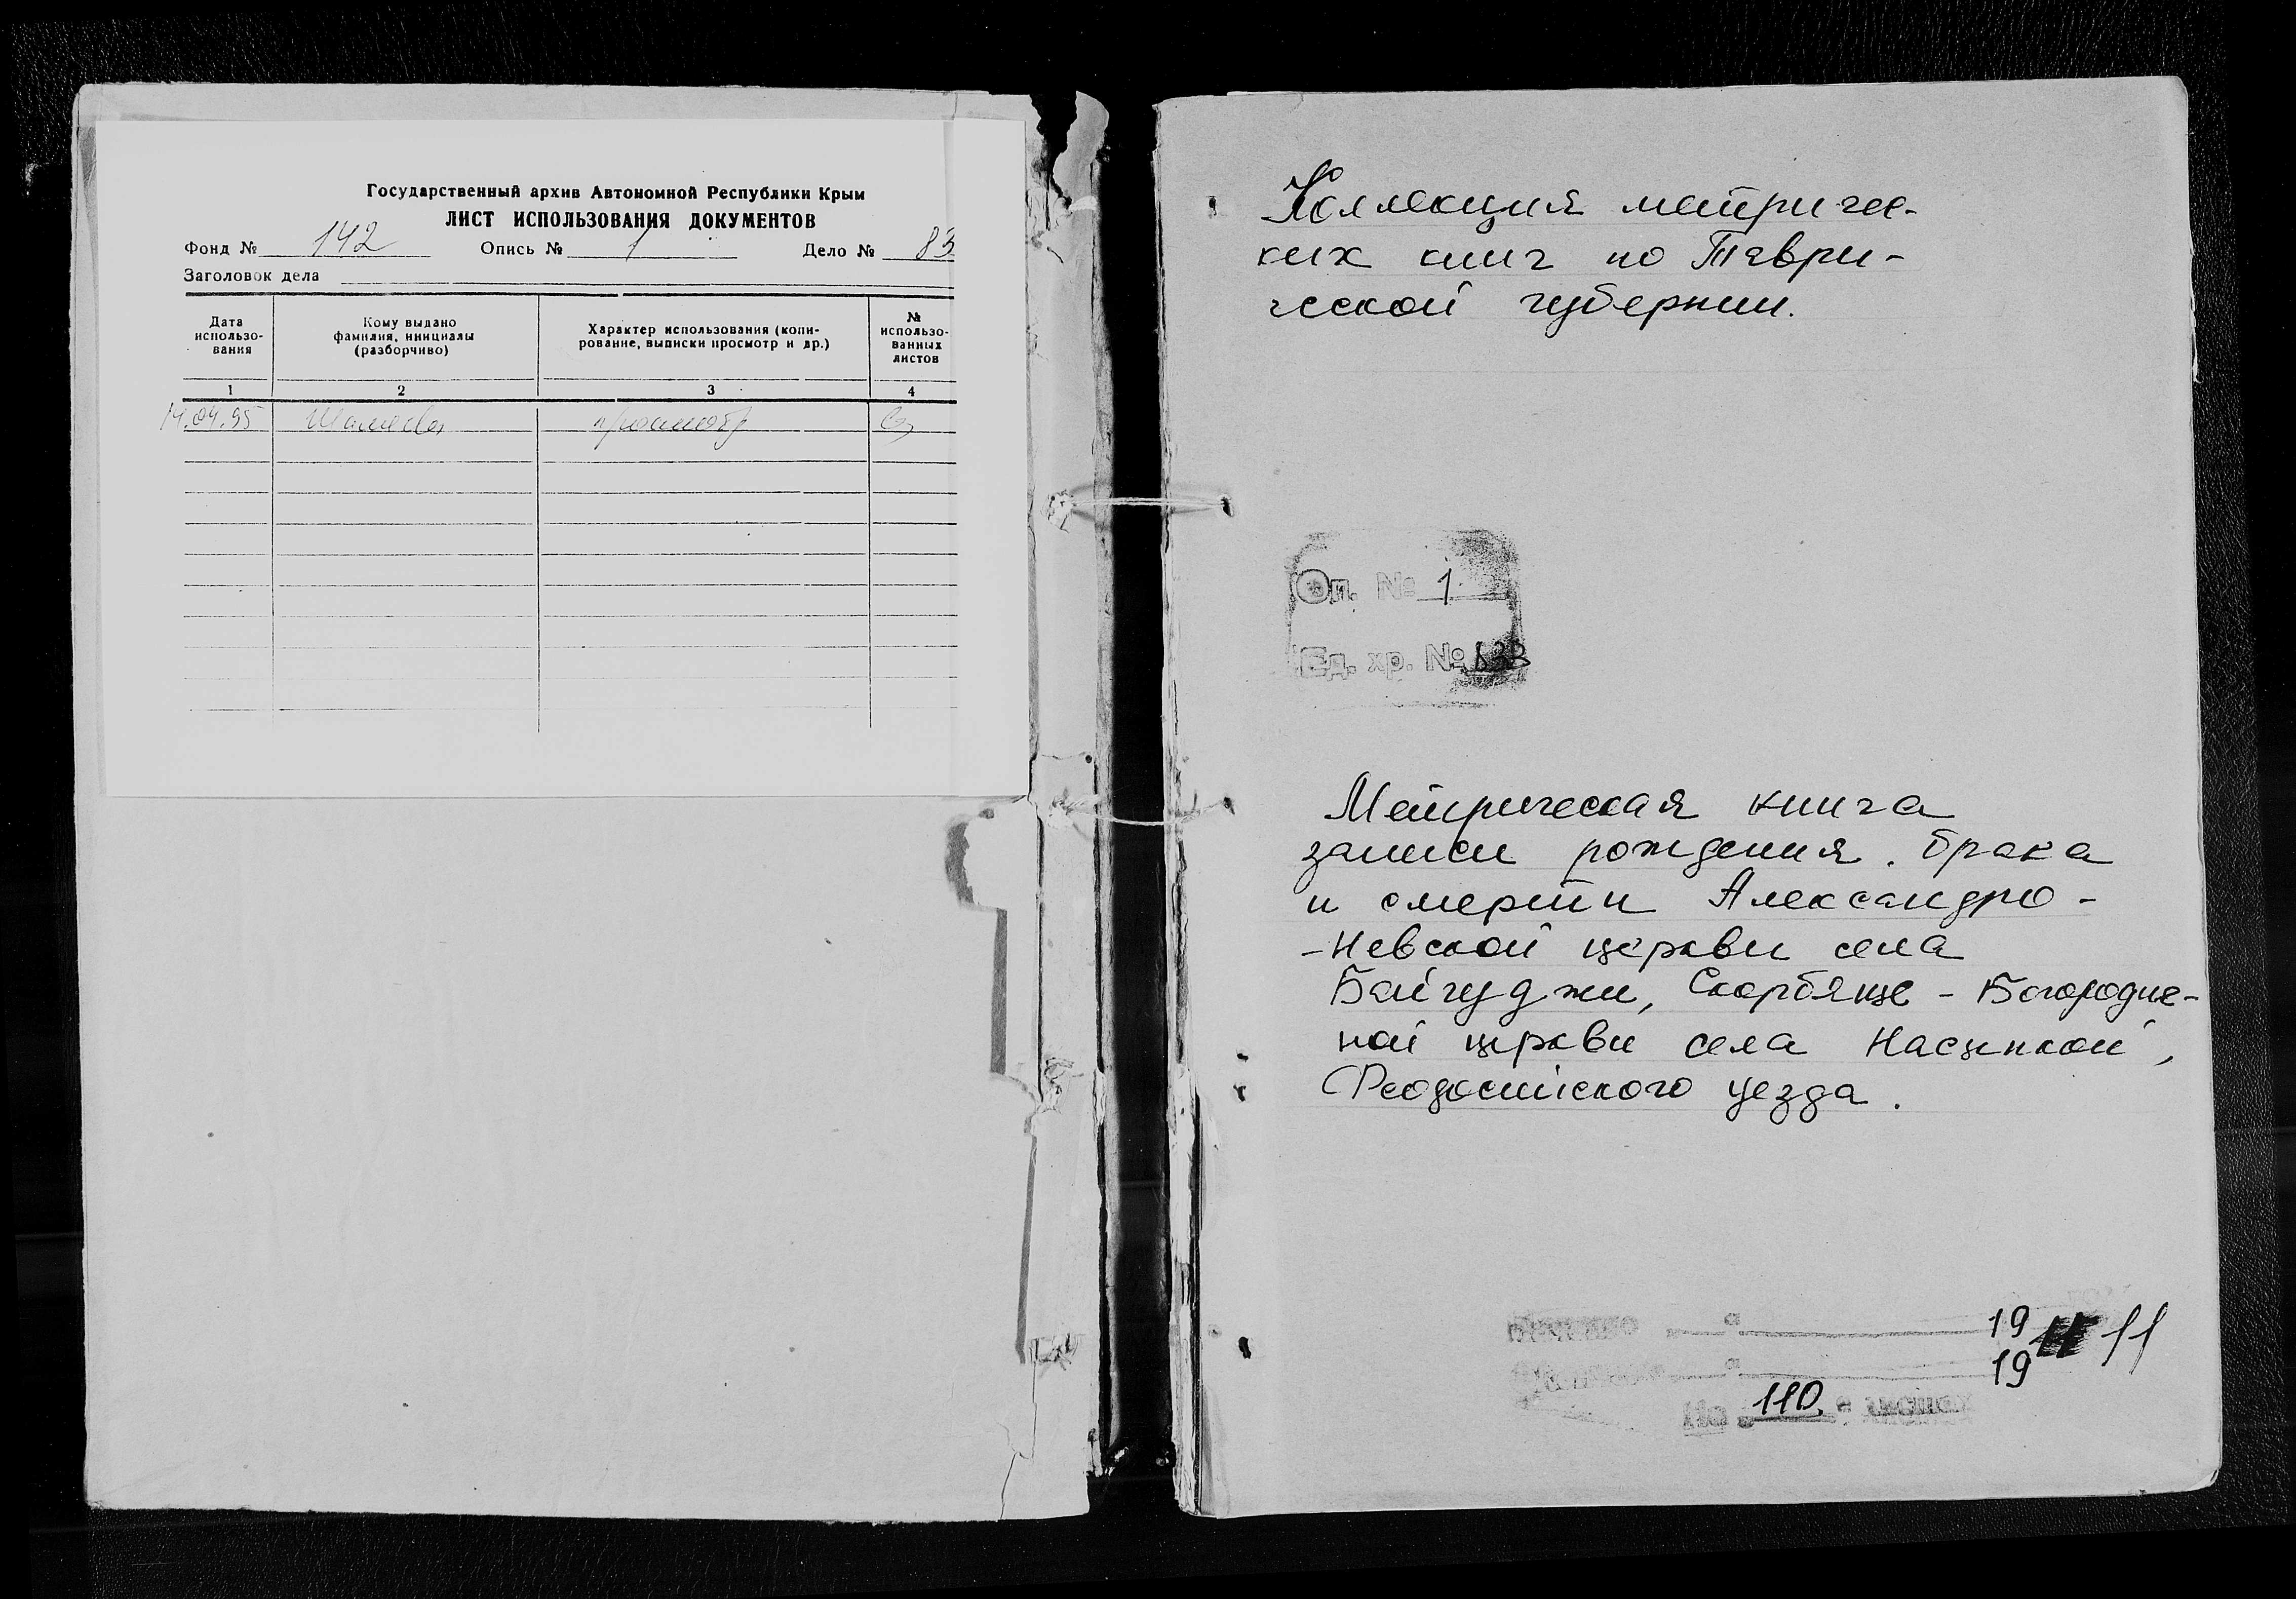 Государственный архив Автономной Республики Крым
ЛИСТ ИСПОЛЬЗОВАНИЯ ДОКУМЕНТОВ
Фонд № 142 Опись № 1 Дело № 83
Заголовок дела
Дата использо-вания
Кому выдано фамилия, инициалы (разборчиво)
Характер использования (копи-рование, выписки просмотр и др.)
№ использо-ванных листов
1 2 3 4
14.04.95 просмотр
Коллекция метричес-
ких книг по Таври-
ческой губернии.
Оп. № 1
Ед. хр. №
Метрическая книга
записи рождения. брака
и смерти Александро-
-Невской церкви села
Байгуджи, Скорбяще-Богородич-
ной церкви села Насыпкой,
Феодосийского уезда.
19 11
19
На 110 листах